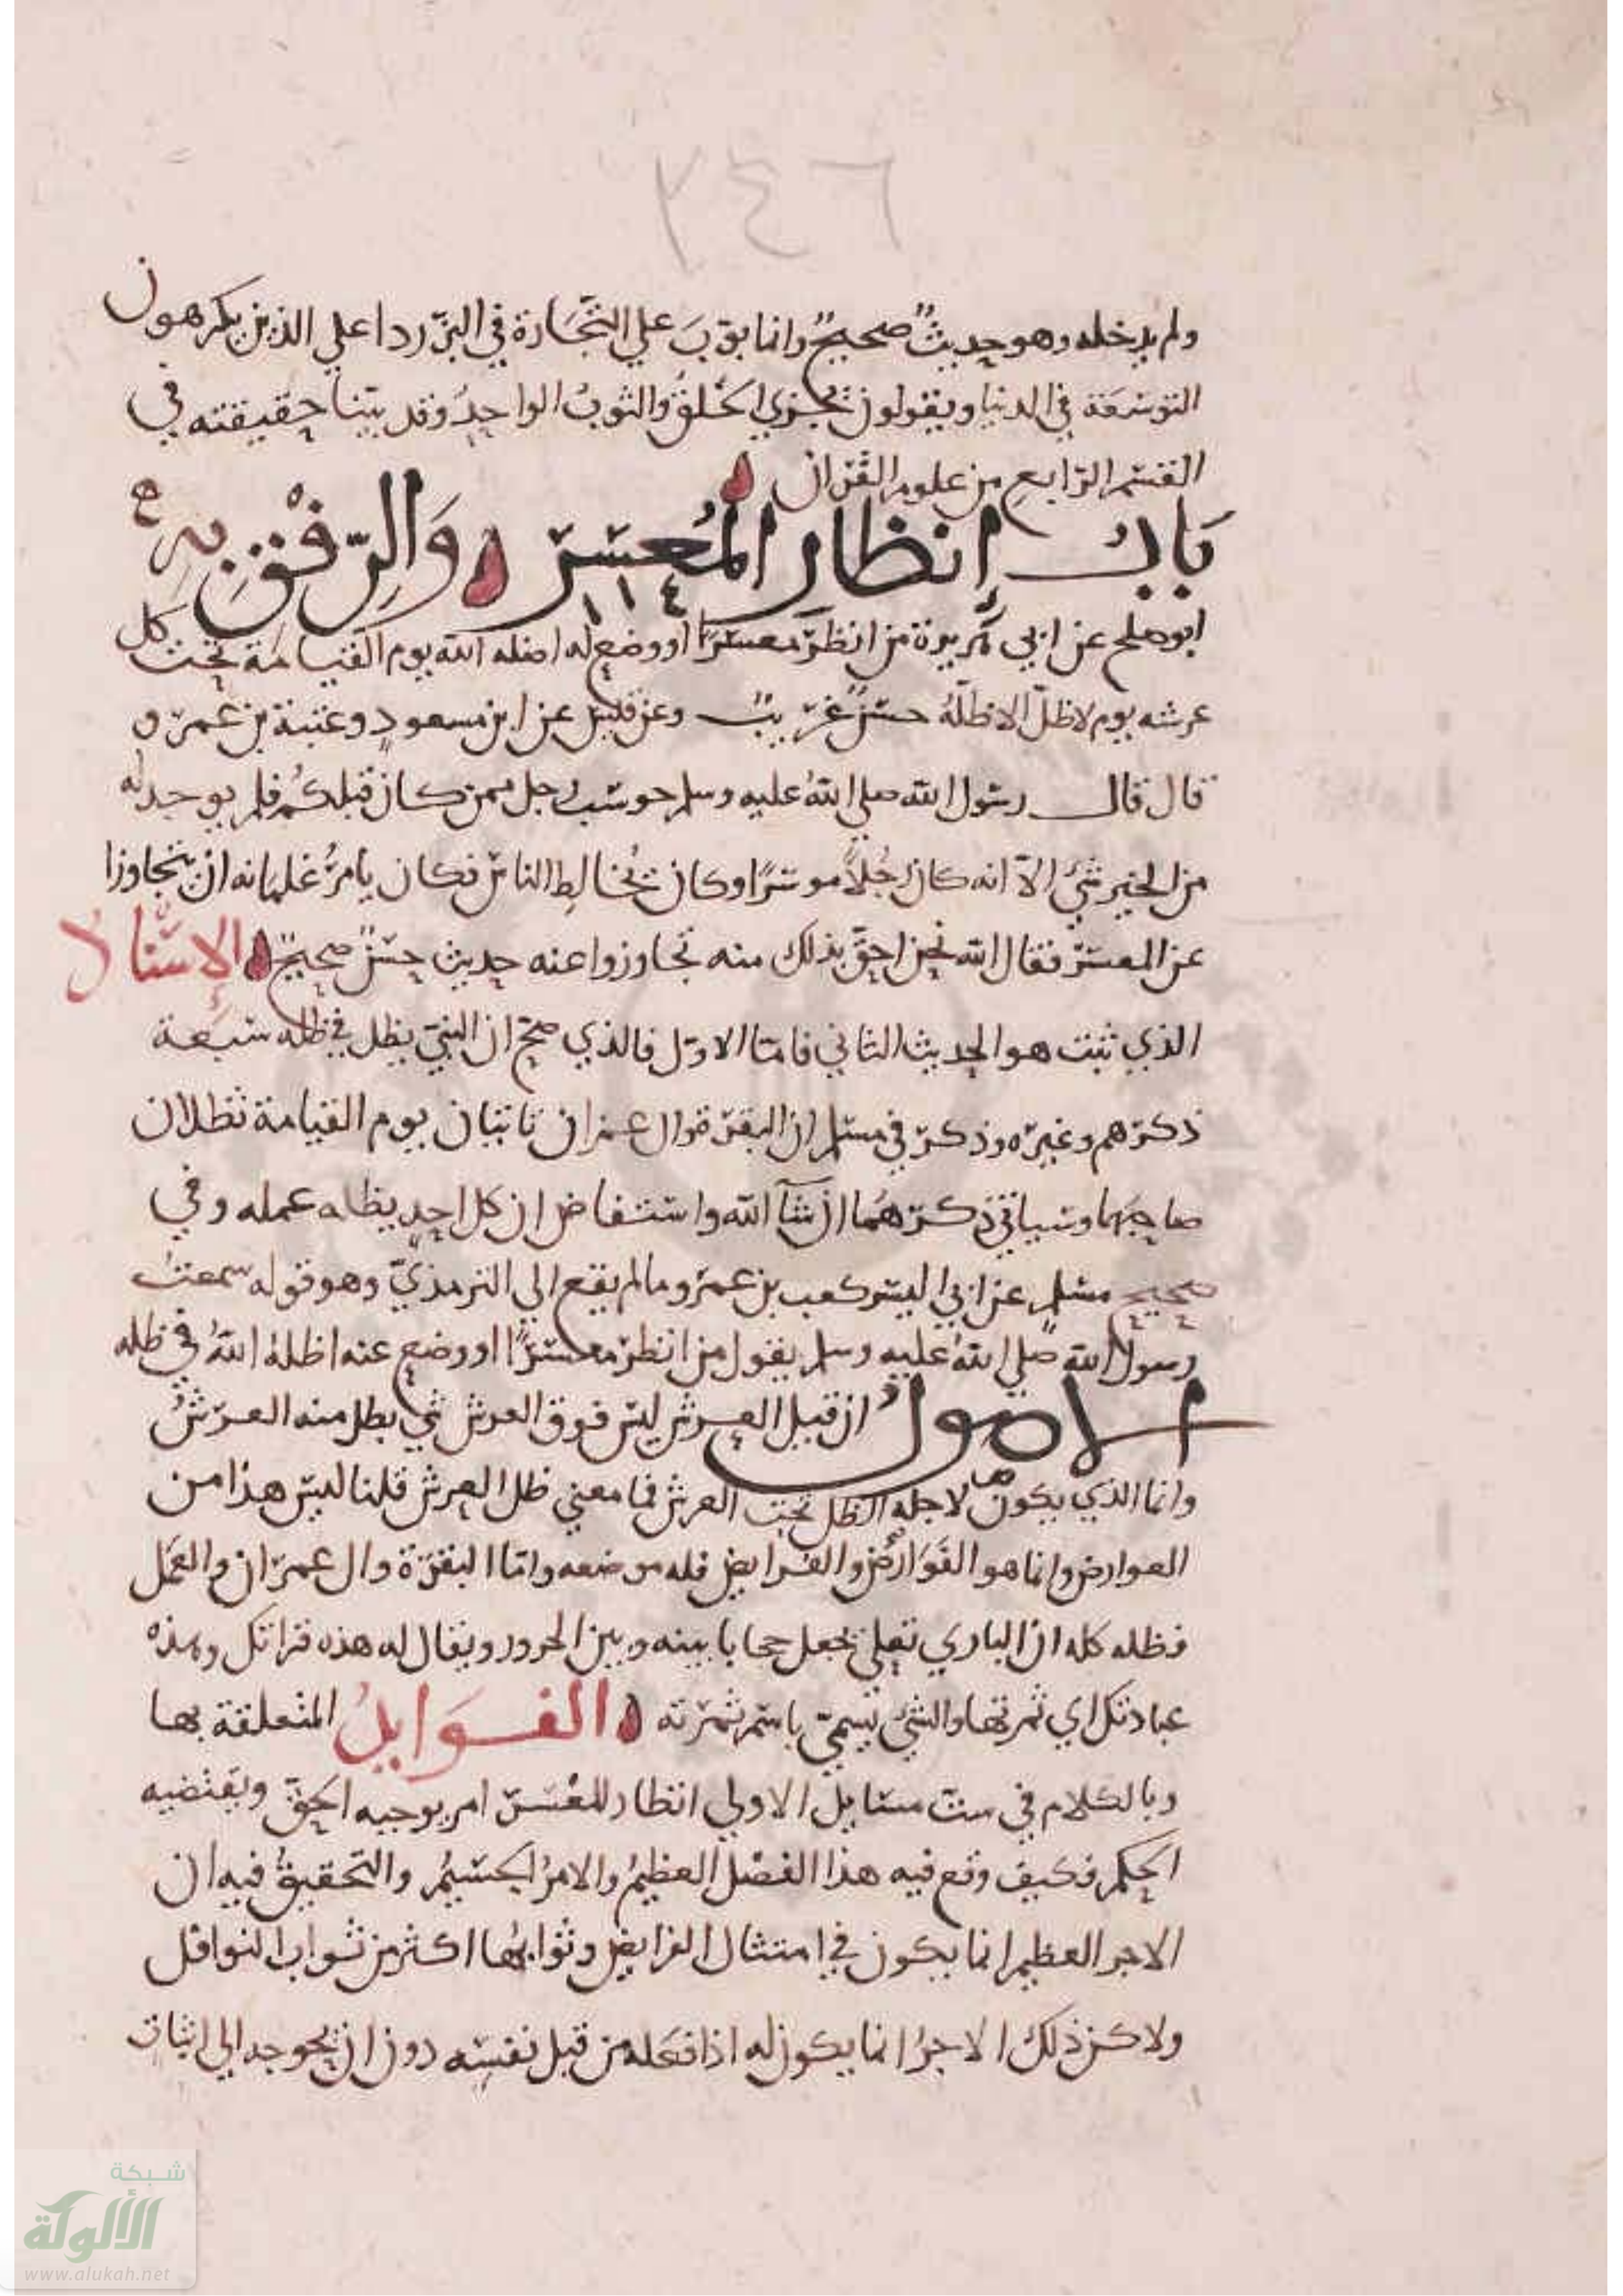 ٢٤٦
ولم يدخله وهو حديثٌ صحيحٌ وانما بوّبَ علي التّجَارة في البزّ ردا علي الذين يكرهون
التوسعة في الدنيا ويقولون يجزي الخَلَقُ والثوبُ الواحدُ وقد بيّنا حقيقته في
القسم الرّابع من علوم القران
بَابُ إنظارِ المُعسِر وَالرِّفْقِ بِهِ
١١٤
ابو صلح عن ابي هريرة من انظر معسرًا او وضع له اضله الله يوم القيامة تحت كل
عرشه يوم لا ظلّ الا ظلّهُ حسنٌ غريبٌ وعن عن ابن مسعودٍ وعتبة بن عمرو
قال قال رسول الله صلي اللهُ عليه وسلم حوسب رجل ممن كان قبلكُم فلم يوجد له
من الخير شيئ الاّ انه كان رجُلاً موسرًا وكان يُخالِط الناس فكان يامرُ غلمانه ان يتجاوزا
عن المعسر فقال الله نحن احقّ بذلك منه تجاوزوا عنه حديث حسنٌ صحيحٌ الإسنادُ
الذي ثبت هو الحديث الثاني فامّا الاوّل فالذي صحّ ان النبيّ يظل في ظله سَبعة
ذكرهم وغيره وذكر في مسلم ان البقرة وال عمران تاتيان يوم القيامة تظلان
صاحبَهما وسياتي ذكرهُما ان شآ الله واستفاض ان كل احدٍ يظله عمله وفي
صحيح مسلم عن ابي اليسر كعب بن عمرو ما لم يقع الي الترمذيّ وهو قوله سمعتُ
رسولَ الله صلي اللهُ عليه وسلم يقول من انظر معسرًا او وضع عنه اظلهُ اللهُ في ظله
الاصولُ ان قيل العرش ليس فوق العرش شي يظل منه العرشُ
وانما الذي يكون لاجله الظل تحت العرش فما معني ظل العرش قلنا ليس هذا من
العوارض وانما هو والفرايض فله موضعه وامّا البقرَة وال عمرَان والعمَل
فظله كله ان الباري تعلي يجعل حجابا بينه وبين الحرور ويقال له هذه قراتكَ وهذه
عبادتكَ اي ثمرتها والشيُ يُسمّي باسم ثمرَته الفَوَايدُ المتعلقة بها
وبالكلام في ست مسَايل الاولي انتظار المعُسر امر يوجبه الحقّ ويقتضيه
الحكم فكيف وقع فيه هذا الفضل العظيمُ والامرُ الجسيمُ والتحقيقُ فيه ان
الاجر العظيم انما يكون في امتثال الفرايض وثوابُها اكثر من ثواب النوافل
ولاكن ذلك الاجرُ انما يكون له اذا فعَله من قبل نفسِه دون ان يحوجه الي اثبات
شبكة
الألوكة
www.alukah.net